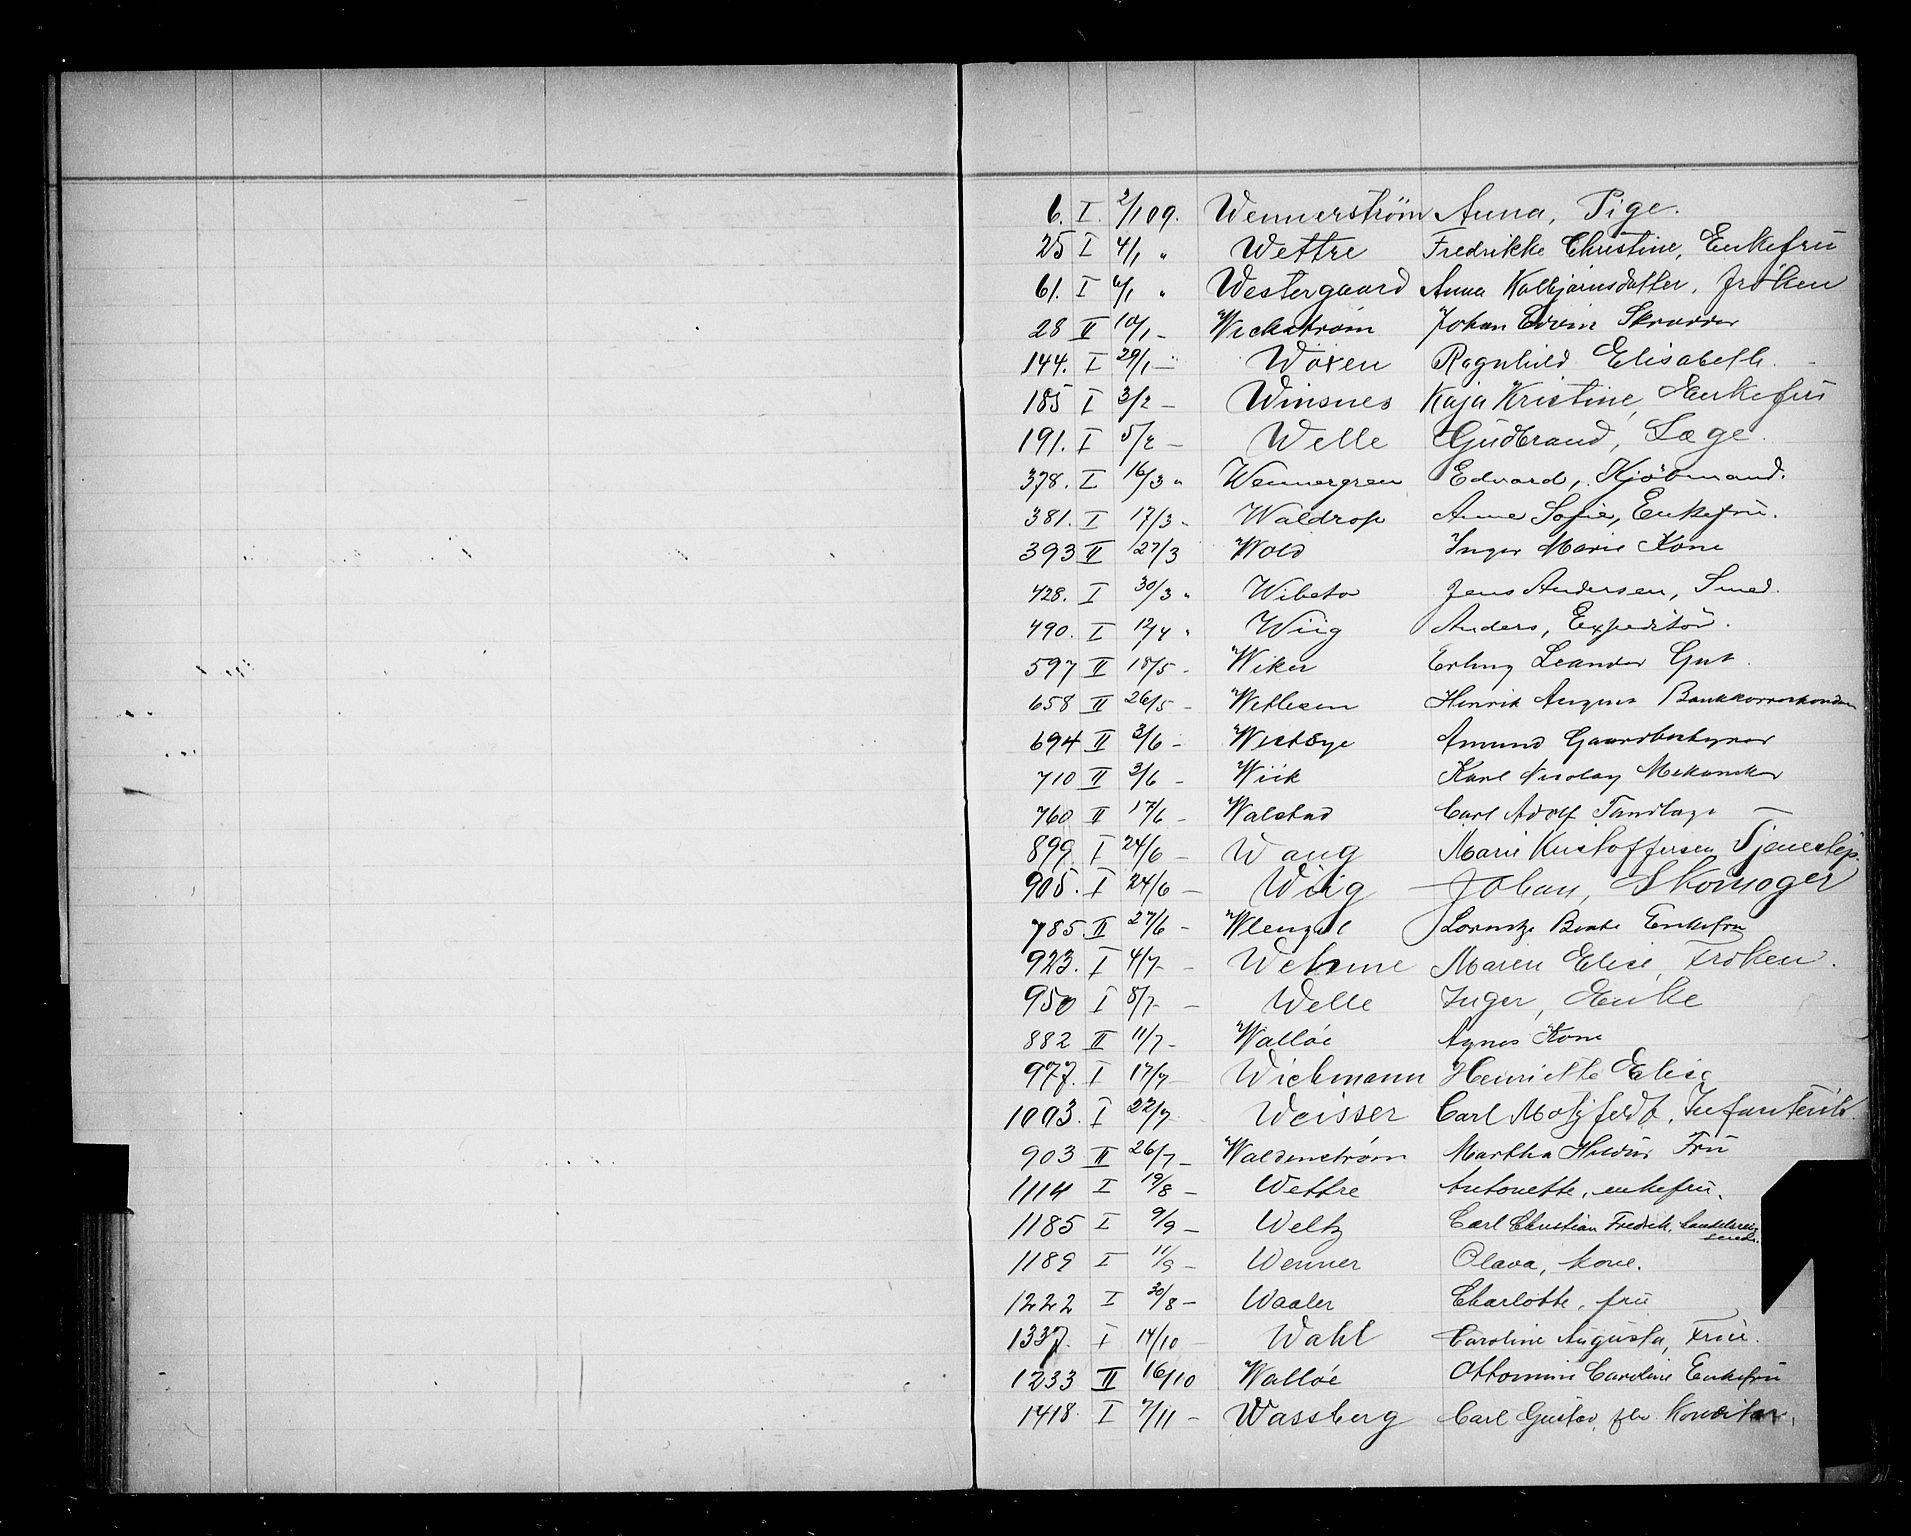 6. I. 2/1 09. Wennerström Anna, Pige.
25 I 4/1 " Wettre Fredrikke Christine, Enkefru
61. I 6/1 " Westergaard Anna Kolbjørnsdatter, frøken
28 II 10/1 - Wickstrøm Johan Edvin Skrædder
144. I 29/1 - Woxen Ragnhild Elisabeth.
185 I 3/2 - Winsnes Kaja Kristine, Enkefru
191. I 5/2 - Welle Gudbrand, Læge.
378. I 16/3 " Wennergren Edvard, Kjöbmand.
381. I 17/3 " Waldrop Anne Sofie, Enkefru.
393 II 27/3 Wold Inger Marie Kone
428. I 30/3 " Wibeto Jens Andersen, Smed.
490. I 12/4 " Wiig Anders, Expeditör.
597 II 18/5 - Wiker Erling Leander Gut.
658 II 26/5 - Wetlesen Henrik August
694 II 3/6 - Westbye Amund Gaardbestyrer
710 II 3/6 - Wiik Karl Nicolay Mekaniker
760 II 17/6 - Walstad Carl Adolf Tandlæge
899. I 24/6 - Wang Marie Kristoffersen Tjenestep.
905. I 24/6 - Wiig Johan, Skomager
785 II 27/6 - Lorentze Beate Enkefru
923. I 4/7 - Wehme Maren Elise, Frøken.
950 I 8/7 - Welle Inger, Enke
882 II 11/7 - Walløe Agnes Kone
977. I 17/7 - Wichmann Henriette Elise
1003. I 22/7 Weisser Carl Motzfeldt,
903 II 26/7 - Waldenstrøm Martha Hildur Fru
1114 I 19/8 - Wettre Antonette, enkefru.
1185 I 9/9 - Weltz Carl Christian Fredrik, handelsreisende.
1189 I 11/9 - Wenner Olava, kone.
1222 I 30/8 - Waaler Charlotte, fru
1337. I 14/10 - Wahl Caroline Augusta, Frue.
1233 II 16/10 Walløe Ottomine Caroline Enkefru
1418. I 7/11 - Wassberg Carl Gustav, fhv. Konditor.